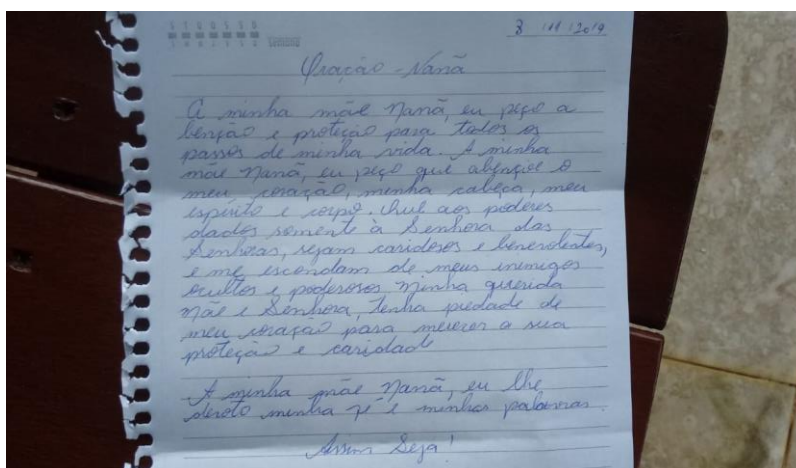 8 / 11 / 2019
Oração - Nanã
A minha mãe Nanã, eu peço a
benção e proteção para todos os
passos de minha vida. A minha
mãe Nanã, eu peço que abençoe o
meu coração, minha cabeça, meu
espírito e corpo. Que aos poderes
dados somente à Senhora das
Senhoras, sejam caridosos e benevolentes,
e me escondam de meus inimigos
ocultos e poderosos. Minha querida
Mãe e Senhora, tenha piedade de
meu coração para merecer a sua
proteção e caridade
A minha mãe Nanã, eu lhe
devoto minha fé e minhas palavras.
Assim Seja!